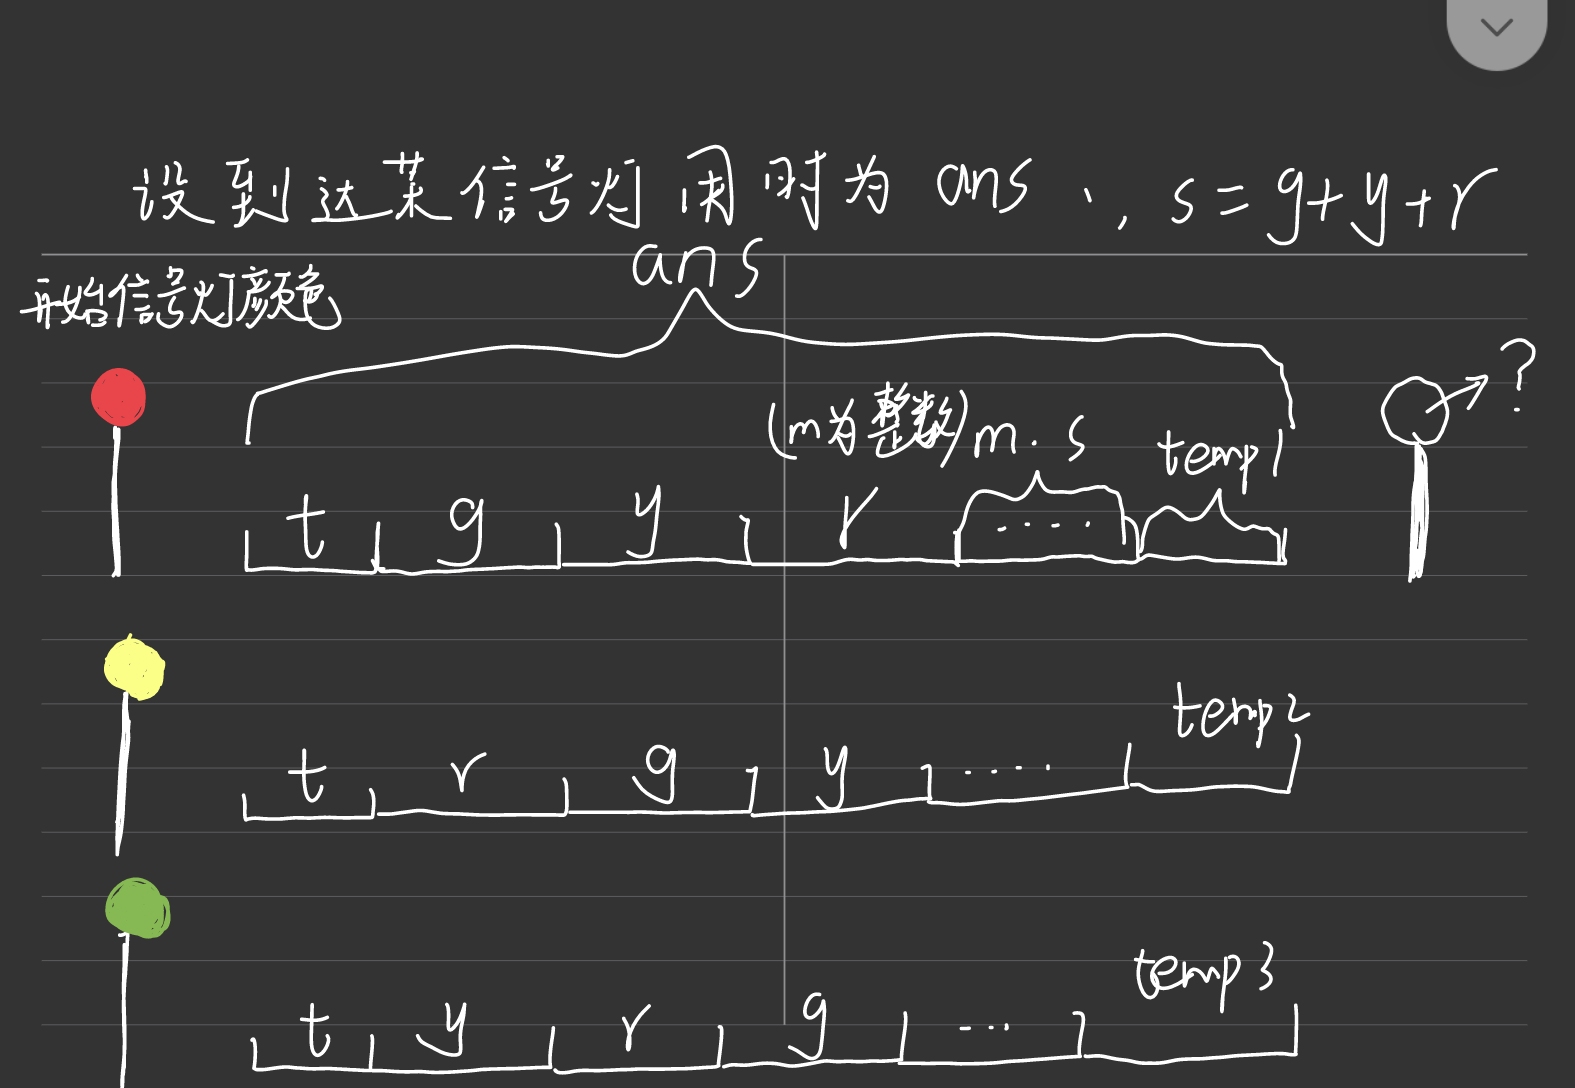 设到达某信号灯用时为 ans 、, s = g+y+r
ans
开始信号灯颜色
?
(m为整数) m·s
temp1
t g y r ....
temp2
t r g y ....
temp3
t y r g ...